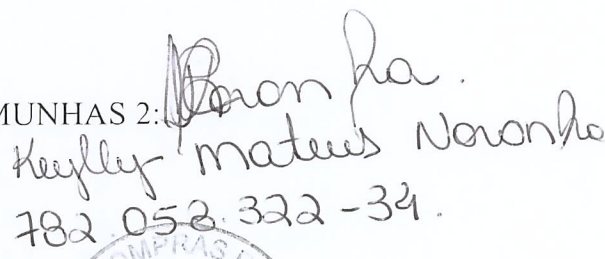 MUNHAS 2: Noronha.
Keylly mateus Noronha
782.052.322-34.
COMPRAS